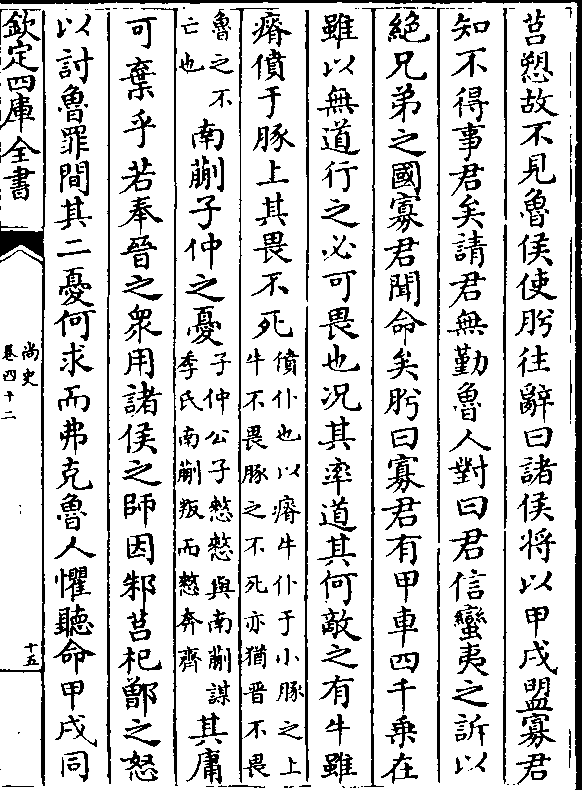 莒愬故不見魯侯使肸往辭曰諸侯將以甲戌盟寡君
知不得事君矣請君無勤魯人對曰君信蠻夷之訴以
絶兄弟之國寡君聞命矣肸曰寡君有甲車四千乗在
雖以無道行之必可畏也况其率道其何敵之有牛雖
瘠僨于豚上其畏不死僨仆也以瘠牛仆于小豚之上牛不畏豚之不死亦猶晉不畏
魯之不亡也南蒯子仲之憂子仲公子憗憗與南蒯謀季氏南蒯叛而憗奔齊其庸
可棄乎若奉晉之衆用諸侯之師因邾莒杞鄫之怒
以討魯罪間其二憂何求而弗克魯人懼聽命甲戌同
欽定四庫全書
尚史
卷四十二
十五